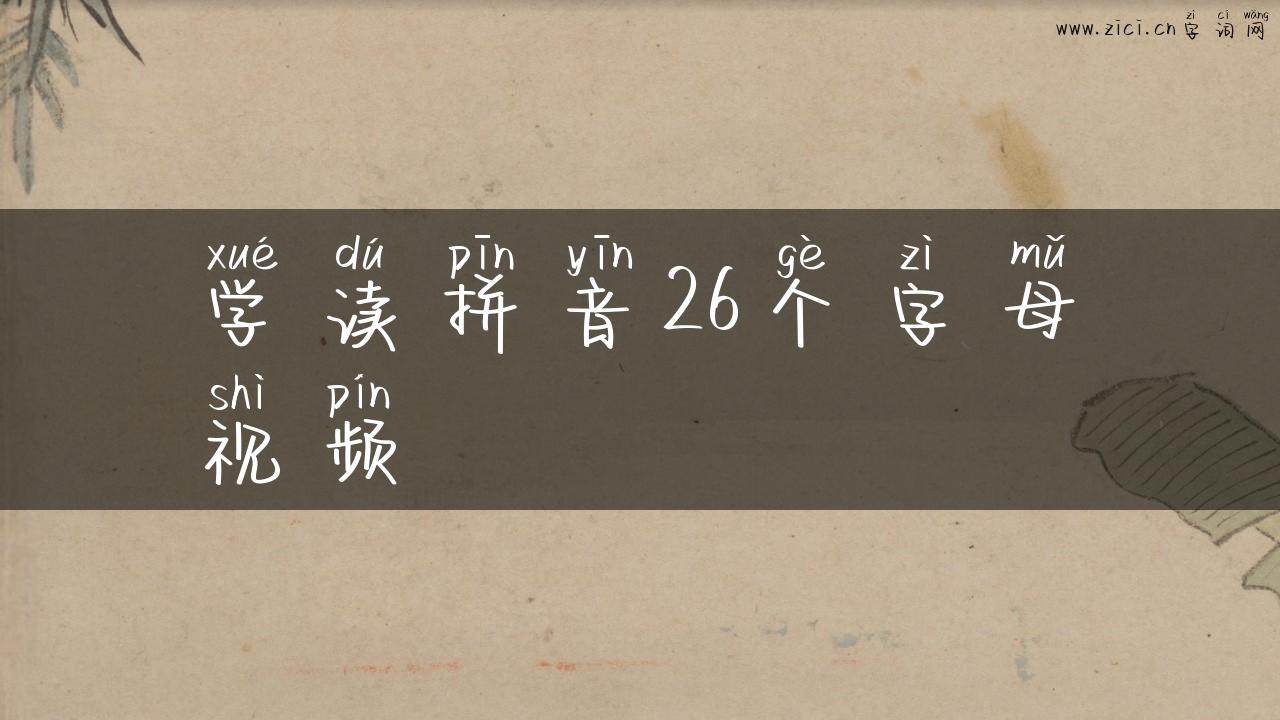 zì cí wǎng
www.zici.cn 字词网
xué dú pīn yīn gè zì mǔ
学读拼音26个字母
shì pín
视频